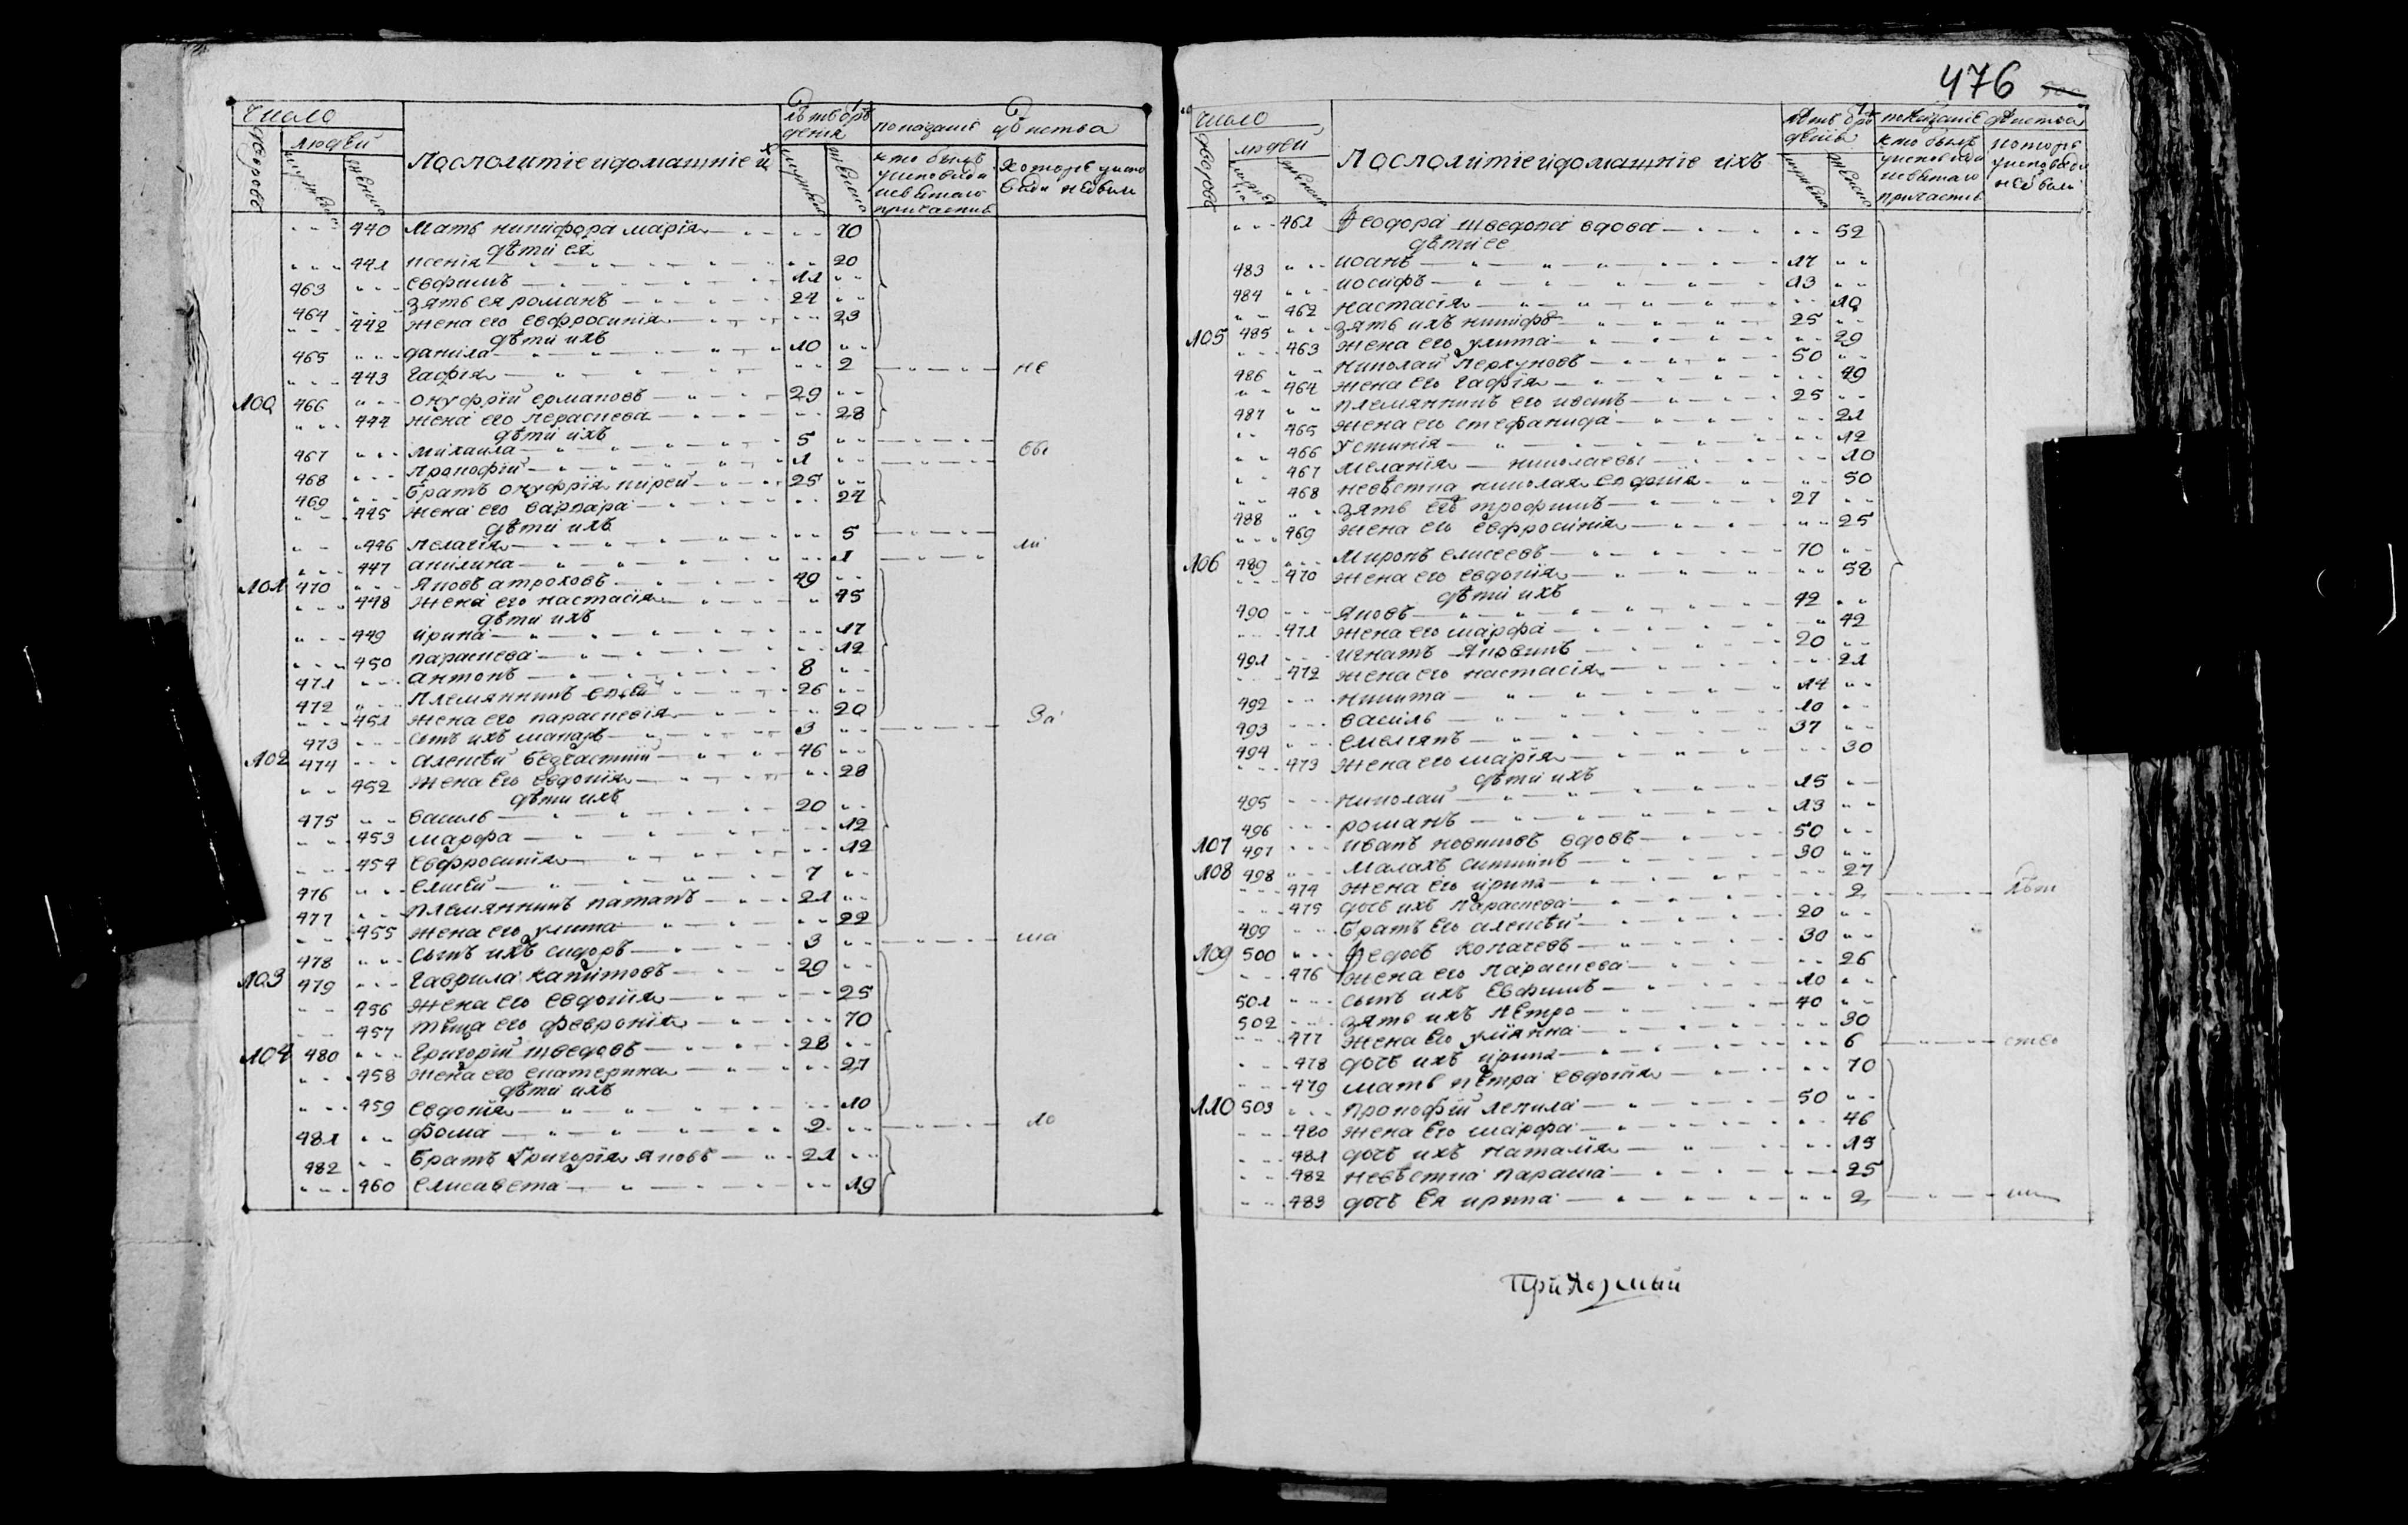 Число
людей
дворовъ
мужеска
женска
Посполитіе и домашніе ихъ
лѣтъ отъ рож
денія
мужеска
женска
показаніе дѣйства
кто былъ
у исповѣди
и святаго
причастія
которіе у испо
вѣди не были
440 Мать никифора марія 70
дѣти ея
441 ксенія 20
463 евфимъ 11
464 зять ея романъ 24
442 жена его евфросинія 23
дѣти ихъ
465 данила 10
443 гафія 2 не
100 466 онуфрій ермаковъ 29
444 жена его параскева 28
дѣти ихъ
467 михаила 5 бы
468 прокофій 1
469 братъ онуфрія кирей 25
445 жена его варвара 24
дѣти ихъ
446 пелагія 5 ли
447 акилина 1
101 470 яковъ атроховъ 49
448 жена его настасія 45
дѣти ихъ
449 ирина 17
450 параскева 12
471 антонъ 8
472 племянникъ 26
451 жена его параскевія 20
473 сынъ ихъ макаръ 3 за
102 474 алексѣй безчастній 46
452 жена его евдокія 28
дѣти ихъ
475 василь 20
453 марфа 12
454 евфросинія 12
476 елисей 7
477 племянникъ патапъ 21
455 жена его улита 22
478 сынъ ихъ сидоръ 3 ма
103 479 гаврила капитовъ 29
456 жена его евдокія 25
457 теща его февронія 70
104 480 григорій шведовъ 28
458 жена его екатерина 27
дѣти ихъ
459 евдокія 10
481 фома 2 ло
482 братъ григорія яковъ 21
460 елисавета 19
476
Число
людей
дворовъ
мужеска
женска
Посполитіе и домашніе ихъ
лѣтъ отъ ро
денія
мужеска
женска
показаніе дѣйства
кто былъ
у исповѣди
и святаго
причастія
которіе
у исповѣди
не были
461 Феодора шведова вдова 52
дѣти ее
483 иоанъ 17
484 иосифъ 13
462 настасія 10
105 485 зять ихъ никифъ 25
463 жена его улита 29
486 николай перхуновъ 50
464 жена его гафія 49
487 племянникъ его 25
465 жена его стефанида 21
466 устинія 12
467 меланія николаевы 10
468 невѣстка николая 50
488 зять его трофимъ 27
469 жена его евфросинія 25
106 489 миронъ елисеевъ 70
470 жена его евдокія 58
дѣти ихъ
490 яковъ 42
471 жена его марфа 42
491 игнатъ 20
472 жена его настасія 21
492 никита 14
493 василь 10
494 емелянъ 37
473 жена его марія 30
дѣти ихъ
495 николай 15
496 романъ 13
107 497 иванъ новиковъ вдовъ 50
108 498 малахъ 30
474 жена его ирина 27
475 дочь ихъ параскева 2 лѣт
499 братъ его алексѣй 20
109 500 федоръ копачевъ 30
476 жена его параскева 26
501 сынъ ихъ евфимъ 10
502 зять ихъ петро 40
477 жена его уліянна 30
478 дочь ихъ ирина 6 ство
479 мать петра евдокія 70
110 503 прокофій лепила 50
480 жена его марфа 46
481 дочь ихъ наталія 15
482 невѣстка параша 25
483 дочь ея ирина 2